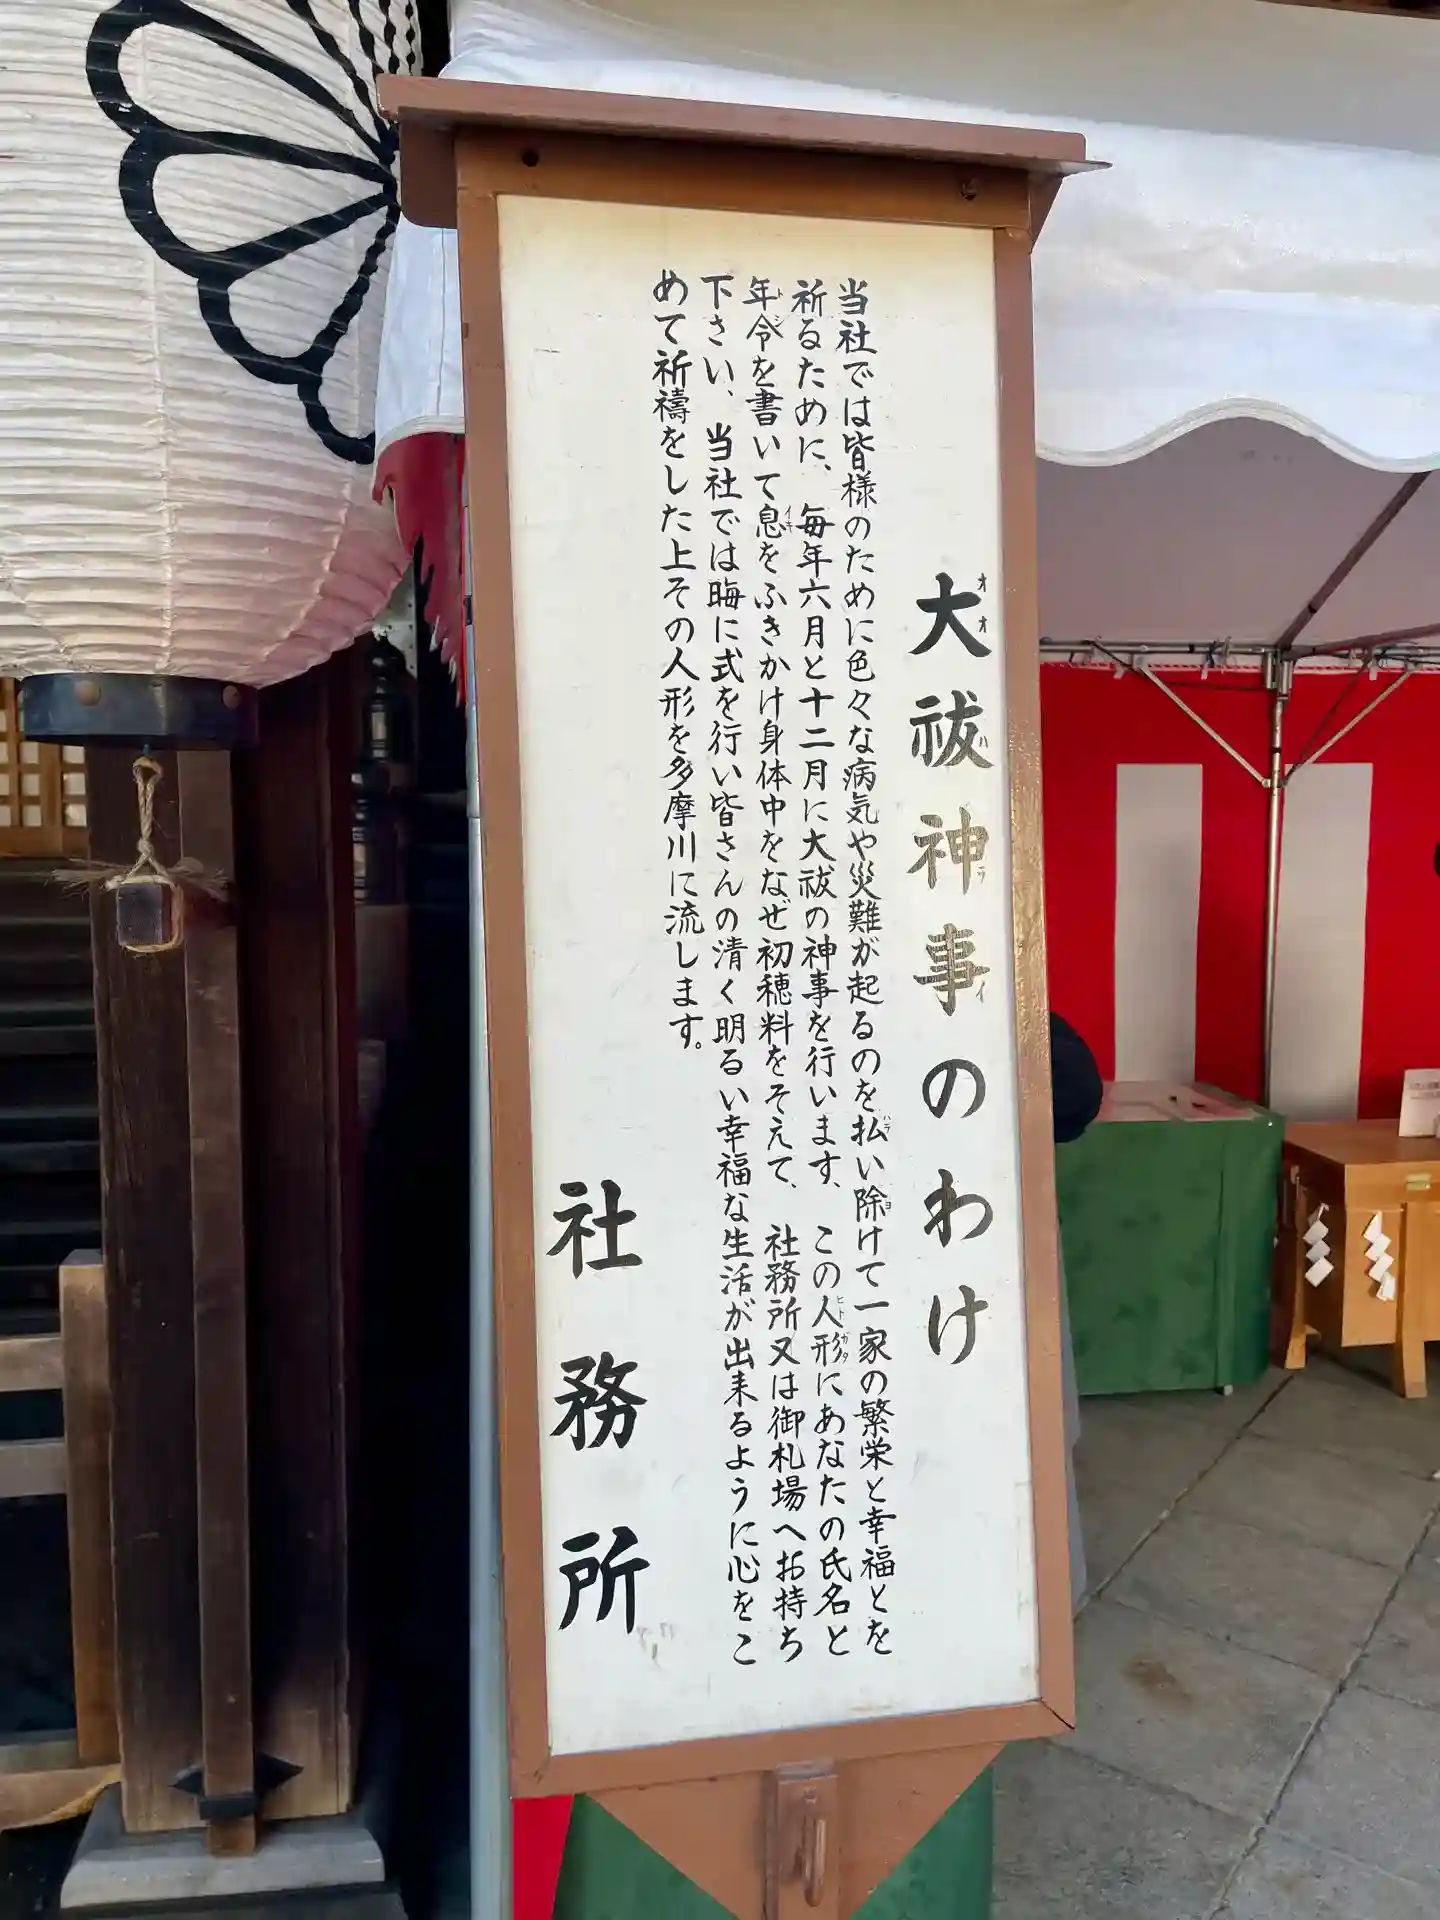 大祓神事のわけ
当社では皆様のために色々な病気や災難が起るのを払い除けて一家の繁栄と幸福とを
祈るために、毎年六月と十二月に大祓の神事を行います、この人形にあなたの氏名と
年令を書いて息をふきかけ身体中をなぜ初穂料をそえて、社務所又は御札場へお持ち
下さい、当社では晦に式を行い皆さんの清く明るい幸福な生活が出来るように心をこ
めて祈禱をした上その人形を多摩川に流します。
社務所